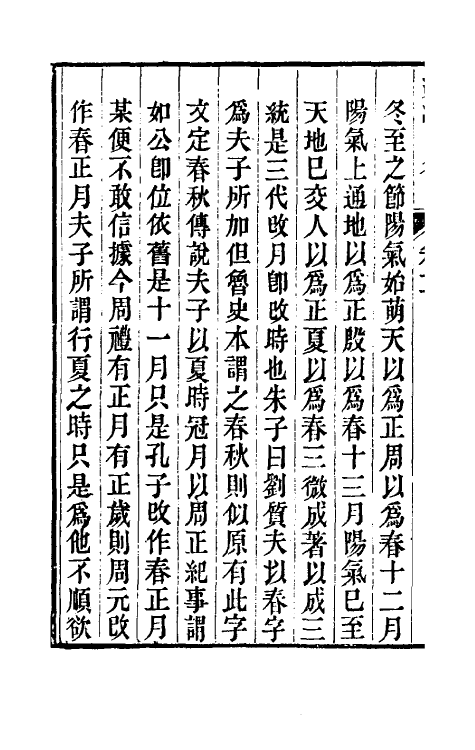 冬至之節陽氣始萌天以爲正周以爲春十二月
陽氣上通地以爲正殷以爲春十三月陽氣巳至
天地巳交人以爲正夏以爲春三微成著以成三
統是三代改月卽改時也朱子曰劉質夫以春字
爲夫子所加但魯史本謂之春秋則似原有此字
文定春秋傳說夫子以夏時冠月以周正紀事謂
如公卽位依舊是十一月只是孔子改作春正月
某便不敢信據今周禮有正月有正歲則周元改
作春正月夫子所謂行夏之時只是爲他不順欲